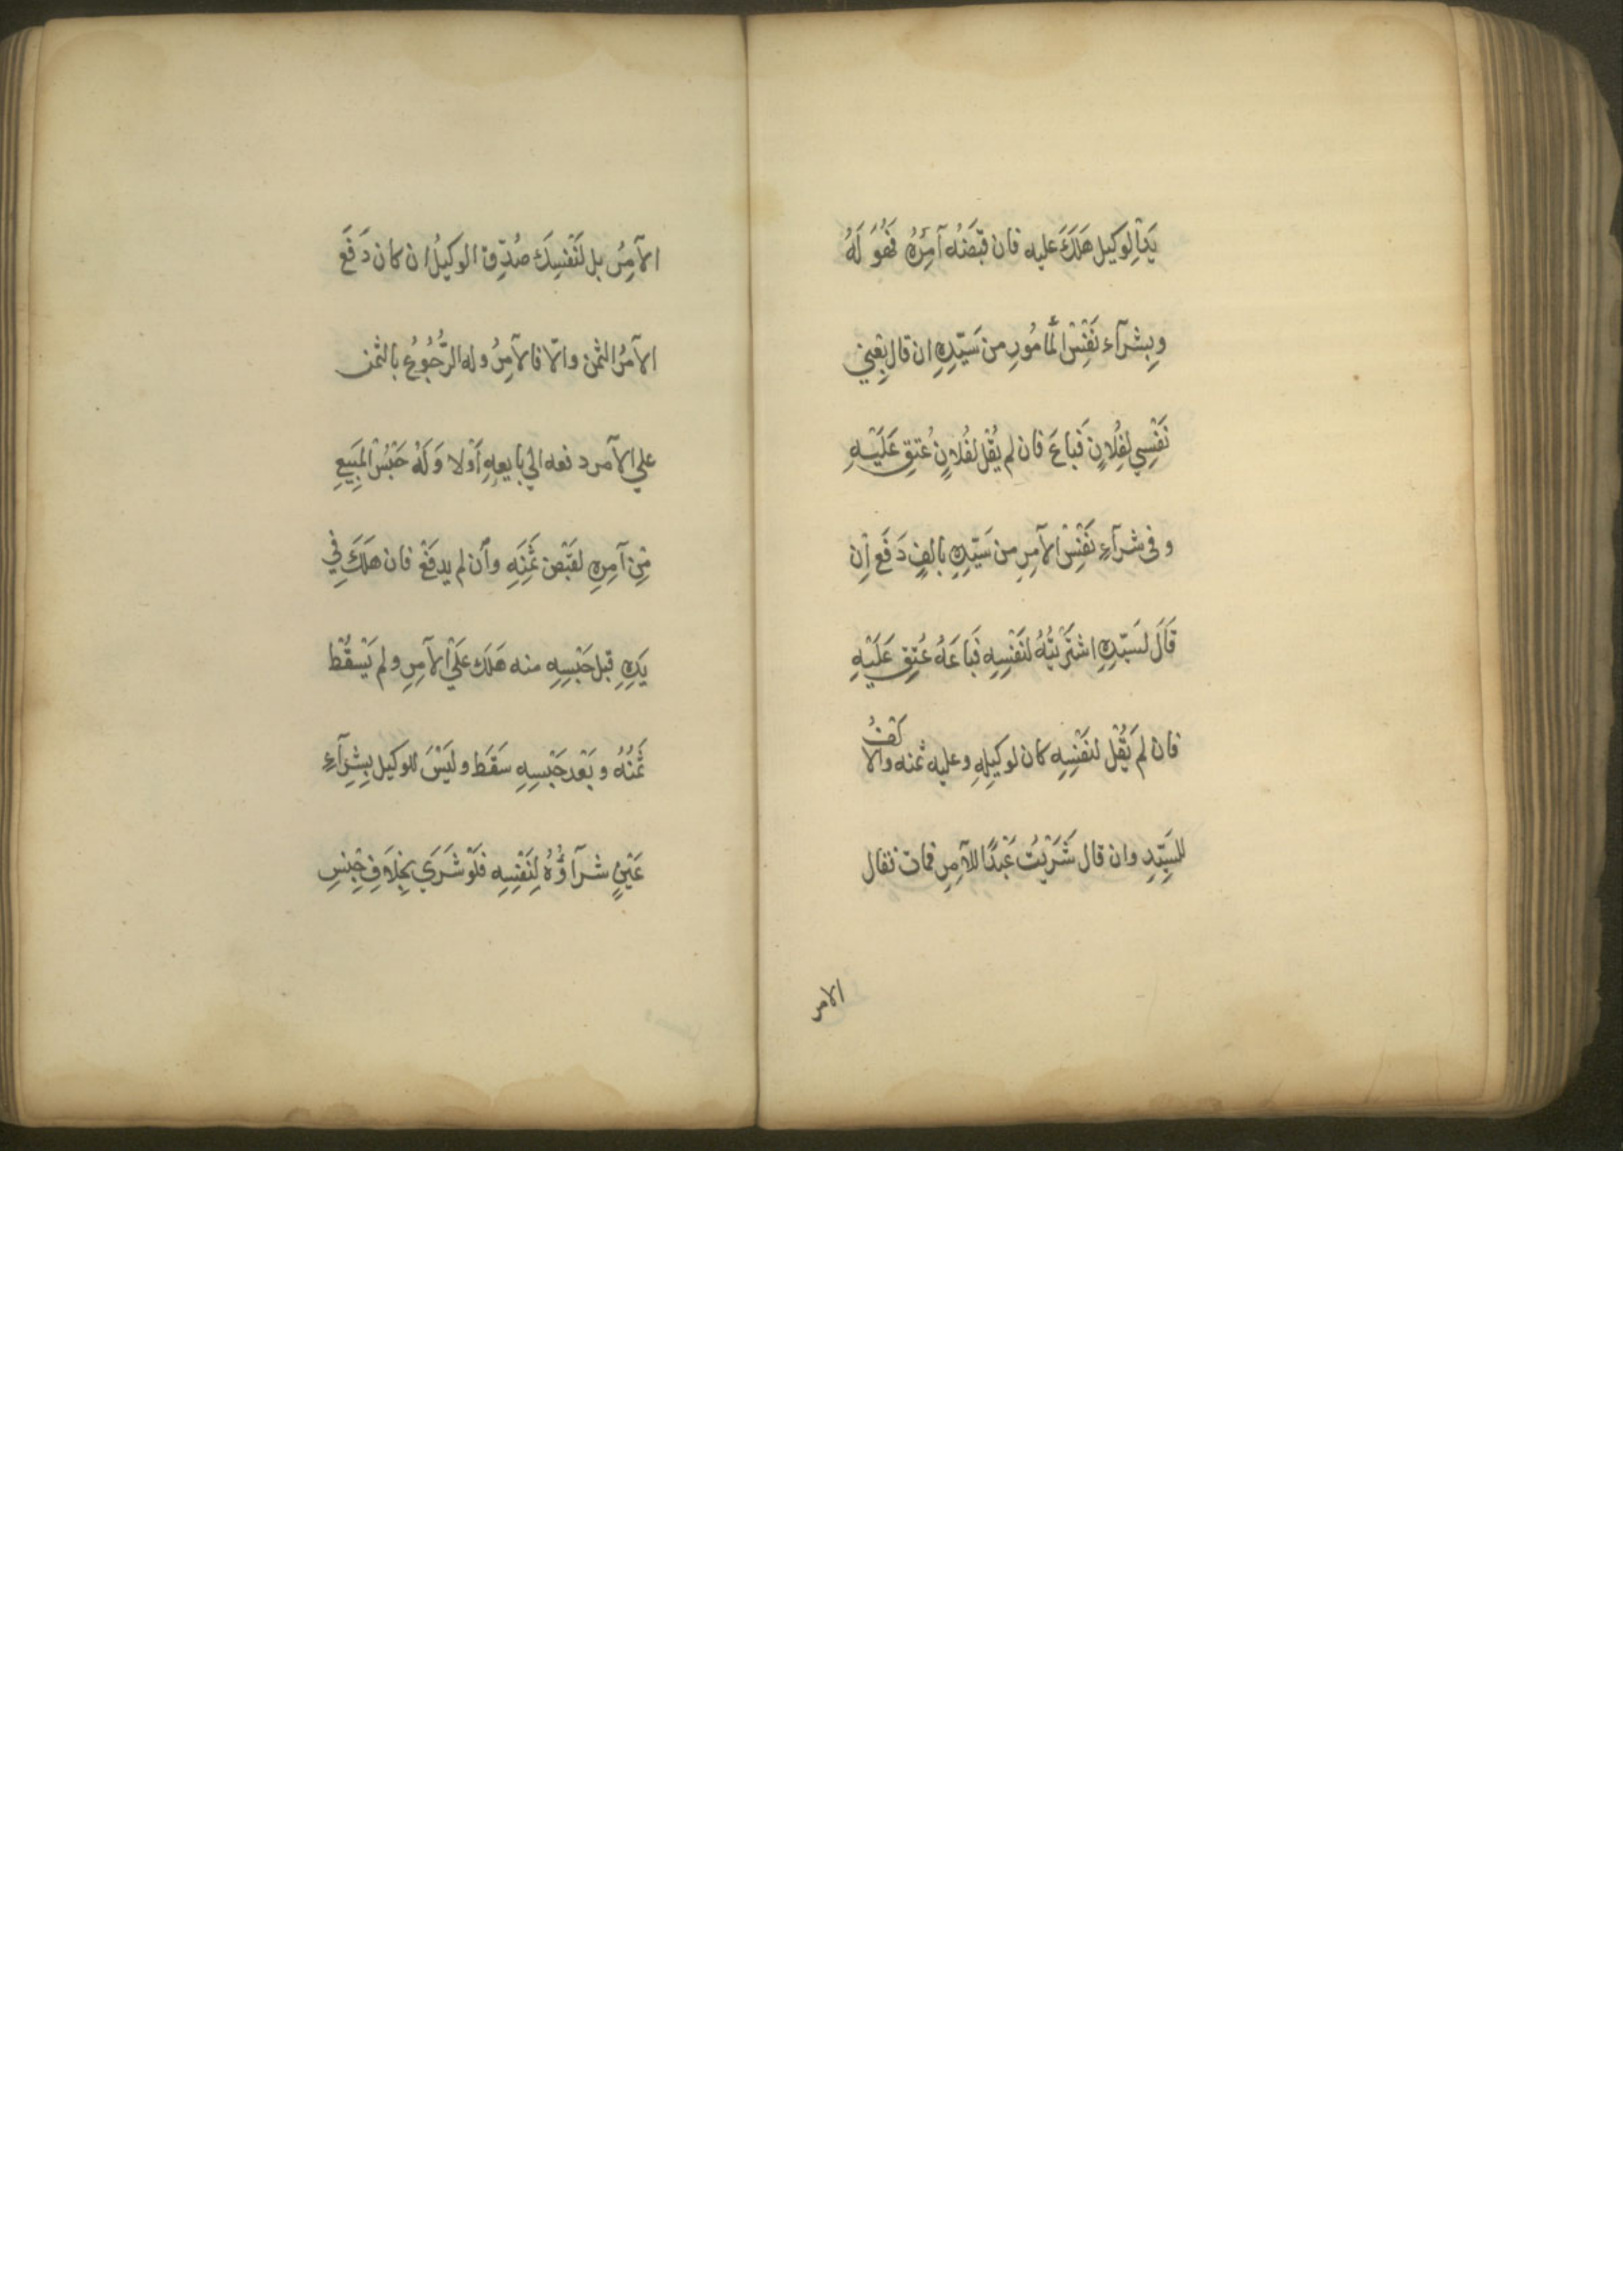 يَدِ الوَكيل هَلَكَ عليه فان قبَضَهُ آمِرُهُ فَهُوَ لَهُ
وبِشرآء نَفْسِ المأمُورِ من سَيّدِهِ ان قال بِعْنِي
نَفْسِي لِفُلانٍ فَباعَ فان لم يَقُلْ لفُلانٍ عُتِقَ عَلَيْهِ
وفى شرآءِ نَفْسِ الآمِرِ من سَيّدِهِ بالفٍ دَفَعَ إن
قَالَ لسَيّدِهِ اشتَرَيْتُهُ لنَفْسِهِ فَبَاعَهُ عُتِقَ عَلَيْهِ
فان لَمْ يَقُلْ لنَفْسِهِ كان لوكيلِهِ وعليه ثمنه والالفُ
للسَيِّدِ وان قال شَرَيْتُ عَبْدًا للآمِرِ فمات فقال
الامر
الآمِرُ بل لنَفْسِكَ صُدِّقَ الوكيلُ ان كان دَفَعَ
الآمرُ الثمن والّا فالآمِرُ وله الرُّجُوعُ بالثمن
علي الآمر دفعه الي بايعهِ أوْلا وَلَهُ حَبْسُ المَبِيعِ
مِن آمِرِهِ لقَبْضِ ثَمَنِهِ وأن لم يدفَعْ فان هَلَكَ فِي
يَدِهِ قبل حَبْسِهِ منه هَلَكَ عَلَي الآمِرِ ولم يَسْقُط
ثَمَنُهُ وبَعْد حَبْسِهِ سَقَطَ ولَيْسَ للوكيل بِشِرَآءِ
عَيْنٍ شرآؤُهُ لِنَفْسِهِ فلَوْ شَرَي بخِلَافِ جِنسِ